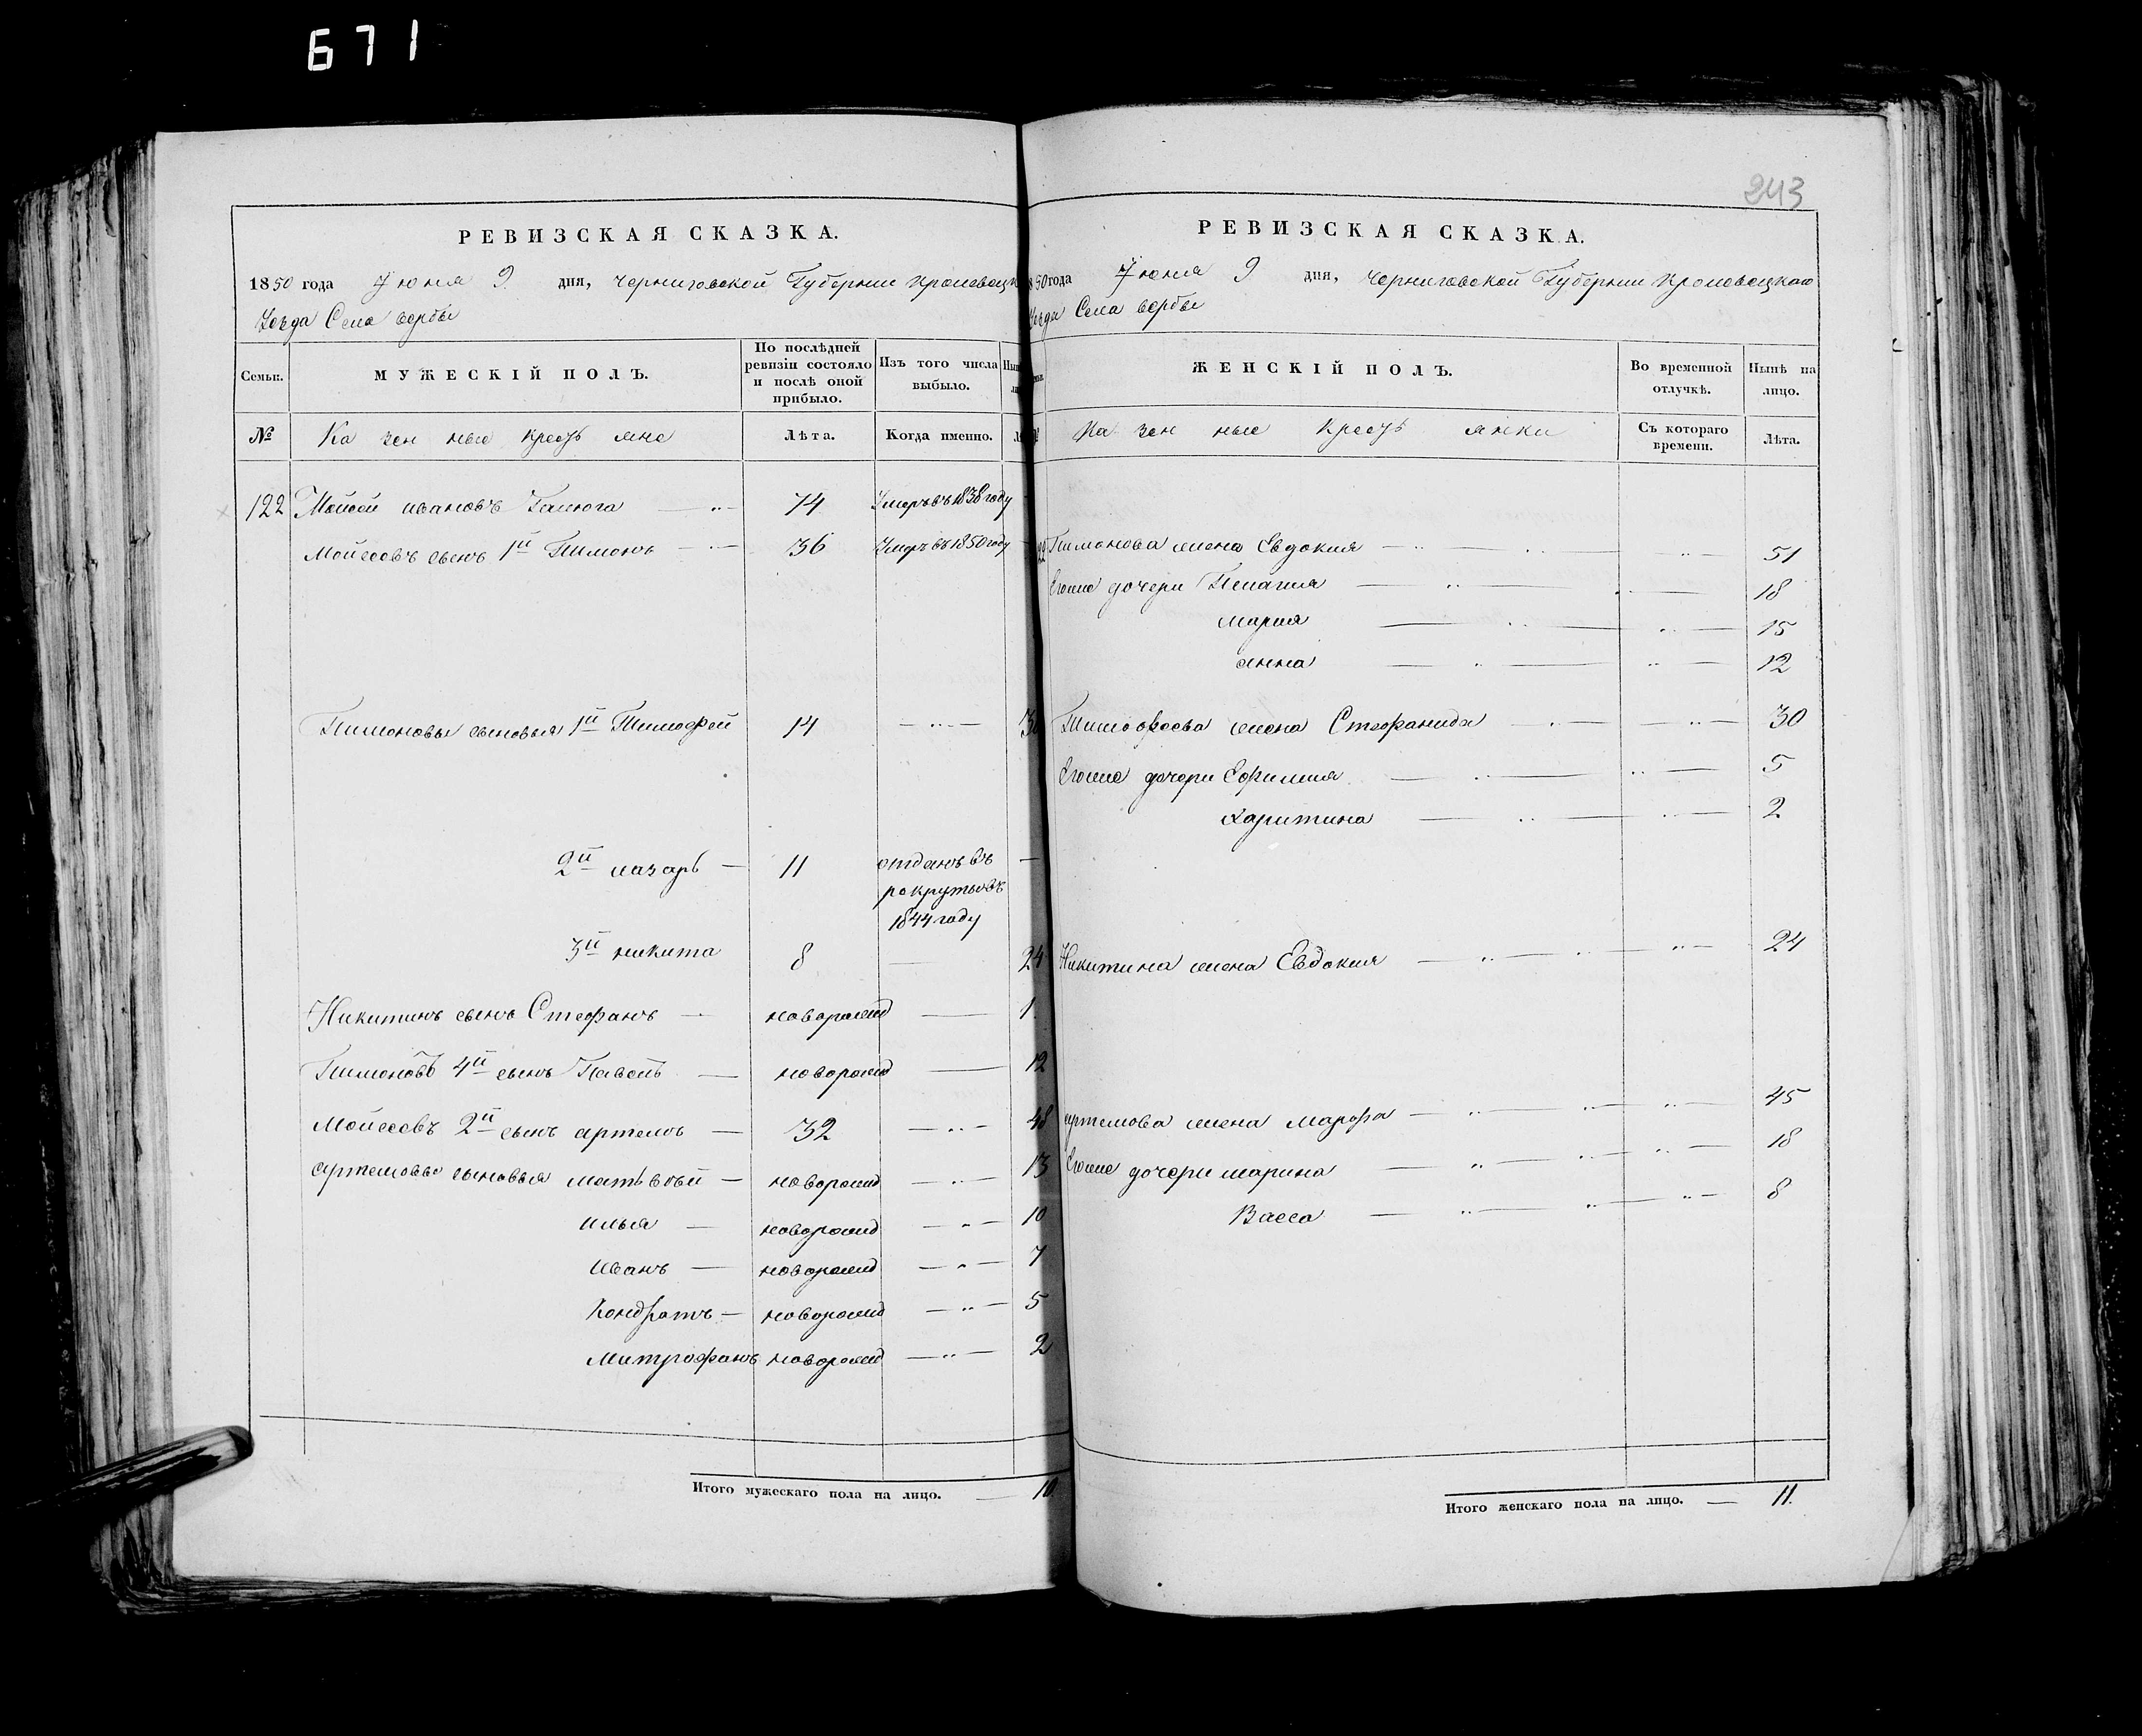 671
243
РЕВИЗСКАЯ СКАЗКА.
1850 года Июня 9 дня, Черниговской Губернии Кролевецк
Уезда Села Вербы
Семьи.
МУЖЕСКІЙ ПОЛЪ.
По послѣдней ревизіи состояло и послѣ оной прибыло.
Изъ того числа выбыло.
№
Казенные крестьяне
Лѣта.
Когда именно.
122 Мойсей ивановъ Галюга — 74 Умеръ въ 1838 году
Мойсеевъ сынъ 1й Пимонъ — 36 Умеръ въ 1850 году —
Пимоновы сыновья 1й Тимофей 14 — 30
2й лазарь — 11 отданъ въ —
рекруты въ
1844 году
3й никита 8 — 24
Никитинъ сынъ Стефанъ — новорожд — 1
Пимоновъ 4й сынъ Павелъ — новорожд — 12
Мойсеевъ 2й сынъ артемъ — 32 — 48
артемовы сыновья матьвѣй — новорожд — 13
илья — новорожд — 10
иванъ — новорожд — 7
Кондратъ — новорожд — 5
Митрофанъ новорожд — 2
Итого мужескаго пола на лицо. — 10.
РЕВИЗСКАЯ СКАЗКА.
1850 года Июня 9 дня, Черниговской Губернии Кролевецкаго
Уезда Села Вербы
ЖЕНСКІЙ ПОЛЪ.
Во временной отлучкѣ.
Нынѣ на лицо.
Казенные крестьянки
Съ котораго времени.
Лѣта.
Пимонова жена Евдокия — 51
Егоже дочери Пелагия — 18
Мария — 15
анна — 12
Тимофеева жена Стефанида — 30
Егоже дочери Ефимия — 5
Харитина — 2
Никитина жена Евдокия — 24
артемова жена марфа — 45
Егоже дочери марина — 18
Васса — 8
Итого женскаго пола на лицо. — 11.